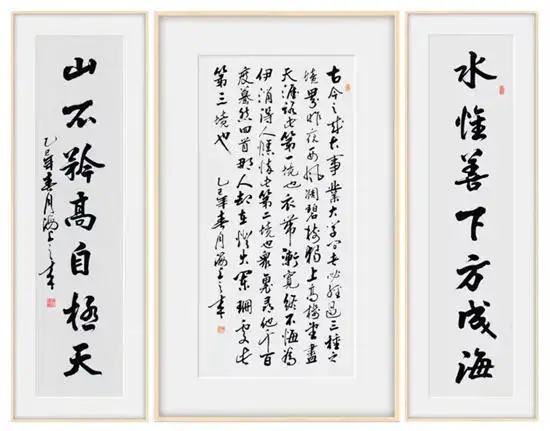 水惟善下方成海
古今之成大事業大学问者必经过三種之
境界昨夜西风凋碧樹独上高楼望盡
天涯路此第一境也衣带漸宽终不悔為
伊消得人憔悴此第二境也眾里尋他千百
度蓦然回首那人却在燈火阑珊處此
第三境也 乙巳年春月海上之
山不矜高自極天
乙巳年春月海上之